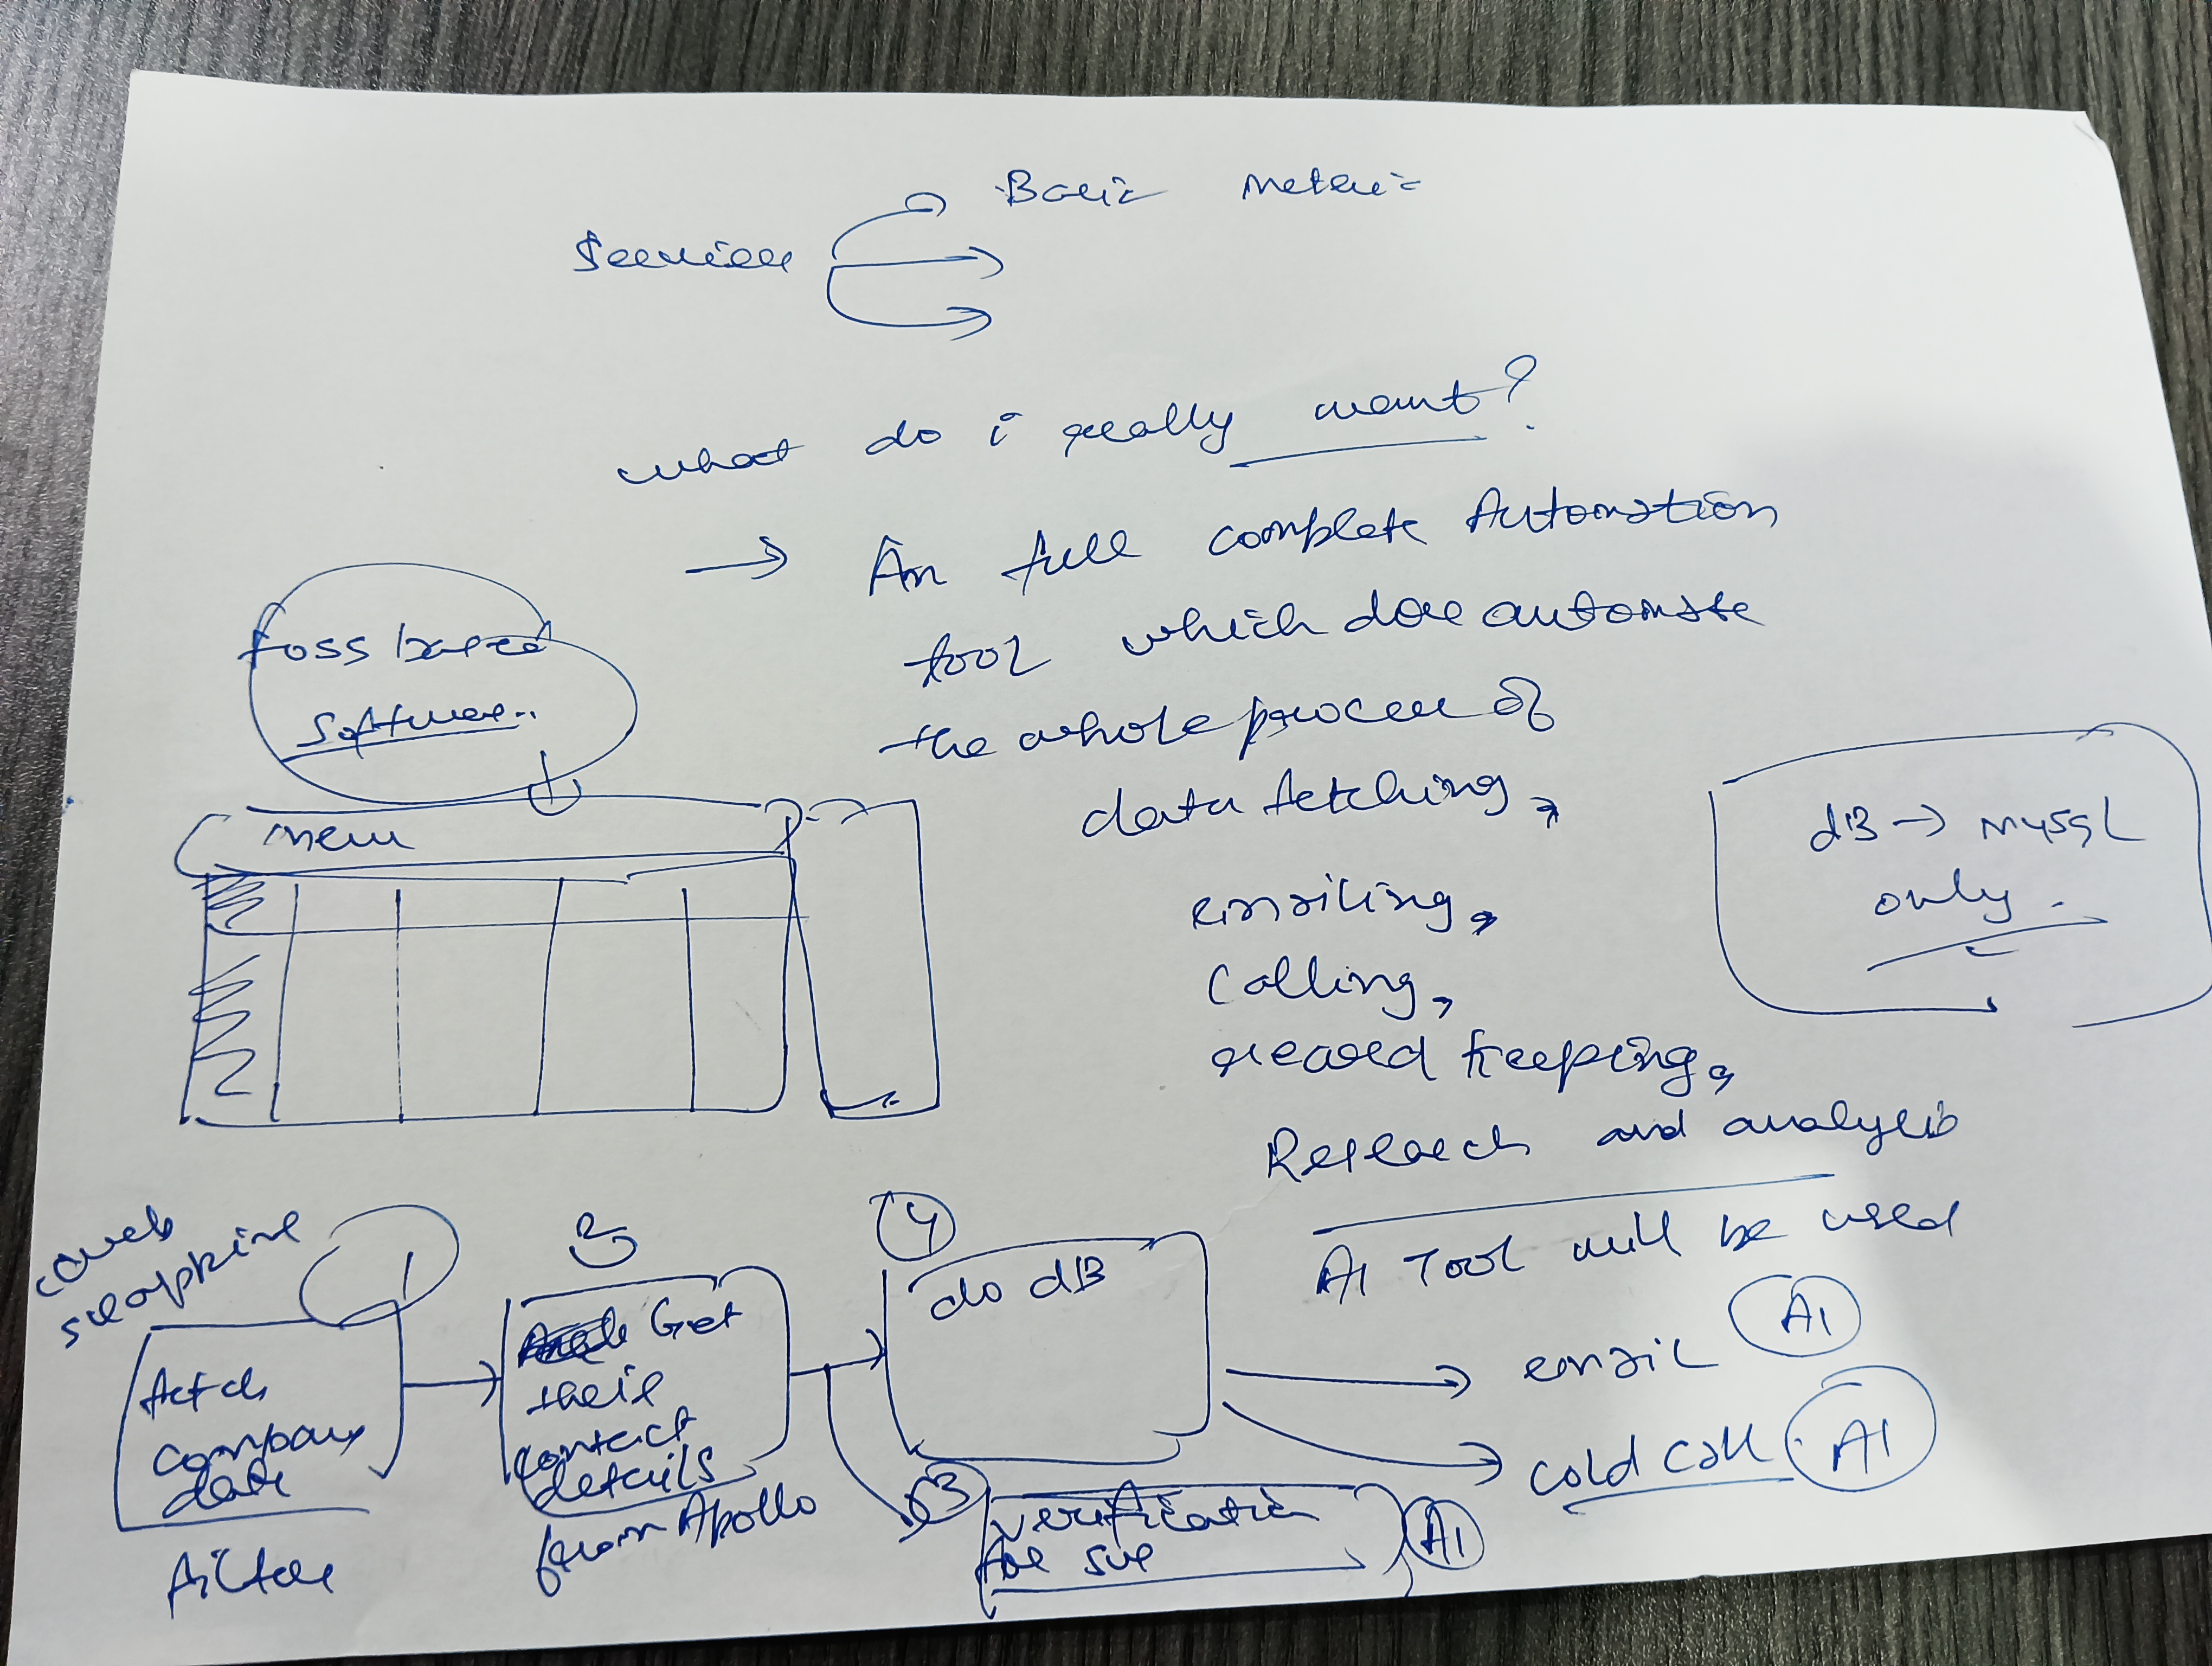 Basic Metric
Services
what do i really want?
→ An full complete Automation
tool which doe automate
the whole process of
data fetching,
emailing,
Calling,
record keeping,
Research and analysis
AI Tool will be used
foss based
software..
menu
dB → MySQL
only.
web
scrapping
1
fetch
company
data
filter
2
Get
their
contact
details
from Apollo
4
do dB
3
verification
for sure
AI
email AI
cold call AI